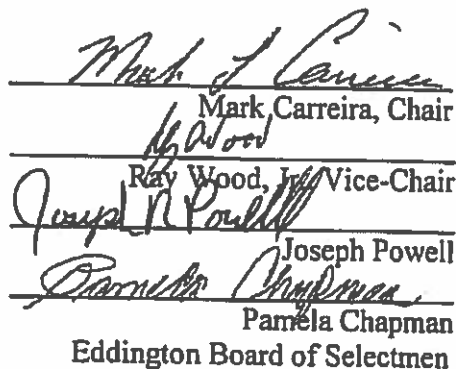 Mark J Carreira
Mark Carreira, Chair
Ray Wood
Ray Wood, Jr., Vice-Chair
Joseph R Powell
Joseph Powell
Pamela Chapman
Pamela Chapman
Eddington Board of Selectmen